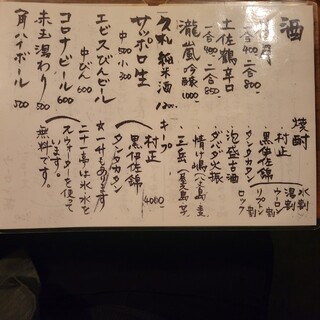 酒
一合400 二合800
土佐鶴辛口
一合400 二合850
瀧嵐吟醸1000
久礼純米酒1200
サッポロ生
中500 小300
エビスびんビール
中びん600
コロナビール600
赤玉湯わり500
角ハイボール500
焼酎
水割
湯割
ウーロン割
ロック
村正
黒伊佐錦
タンタカタン
泡盛古酒
ダバダ火振
情け嶋(八丈島) 麦
キープ
村正
黒伊佐錦
タンタカタン
4000
二十一亭は氷、水を
使って
います。
無料です。